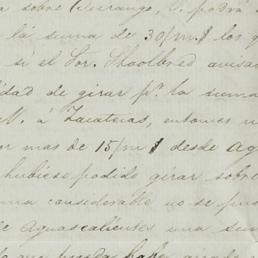 sobre Durango, podrá
la suma de 30/m$ los q
si el Sor. Shoolbred avisa
lidad de girar pr. la suma
M. á Zacatecas, entonces n
or mas de 15/m$ desde Ag
hubiese podido girar sobre
ma considerable no se pu
de Aguascalientes una su